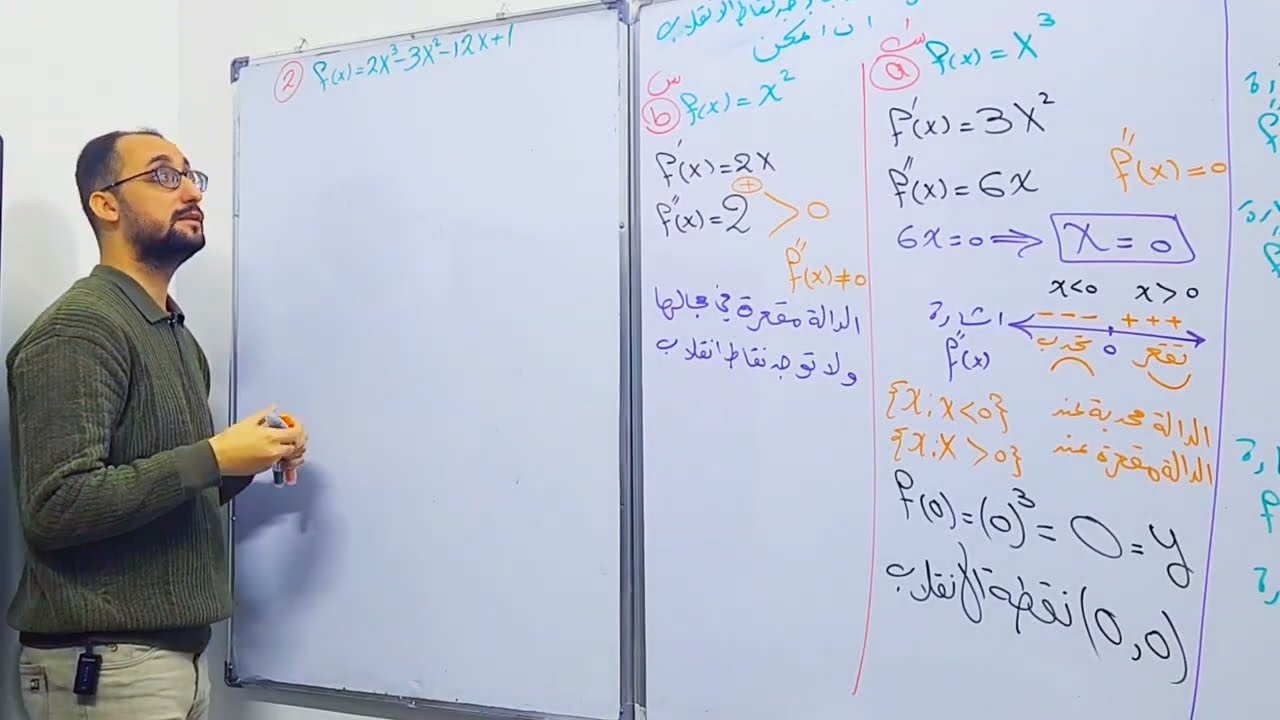 ② f(x)=2x³-3x²-12x+1
نقاط الانقلاب
ان امكن
س
ⓑ f(x)=x²
f'(x)=2x
+
f''(x)=2 > 0
f''(x)≠0
الدالة مقعرة في مجالها
ولا توجد نقاط انقلاب
ⓐ f(x)=x³
f'(x)=3x²
f''(x)=0
f''(x)=6x
6x=0 ⇒ x=0
x<0 x>0
اشارة - - - + + +
f''(x) تحدب 0 تقعر
الدالة محدبة عند {x;x<0}
الدالة مقعرة عند {x;x>0}
f(0)=(0)³=0=y
(0,0) نقطة الانقلاب